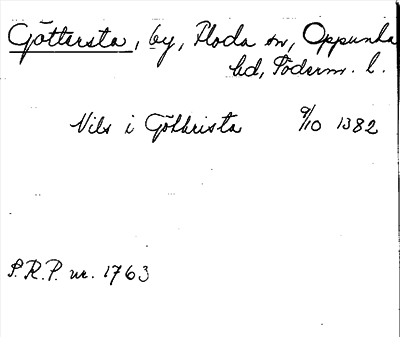 Göttersta, by, Floda sn, Oppunda
hd, Söderm. l.
Nils i Götbrista 9/10 1382
S.R.P. nr. 1763